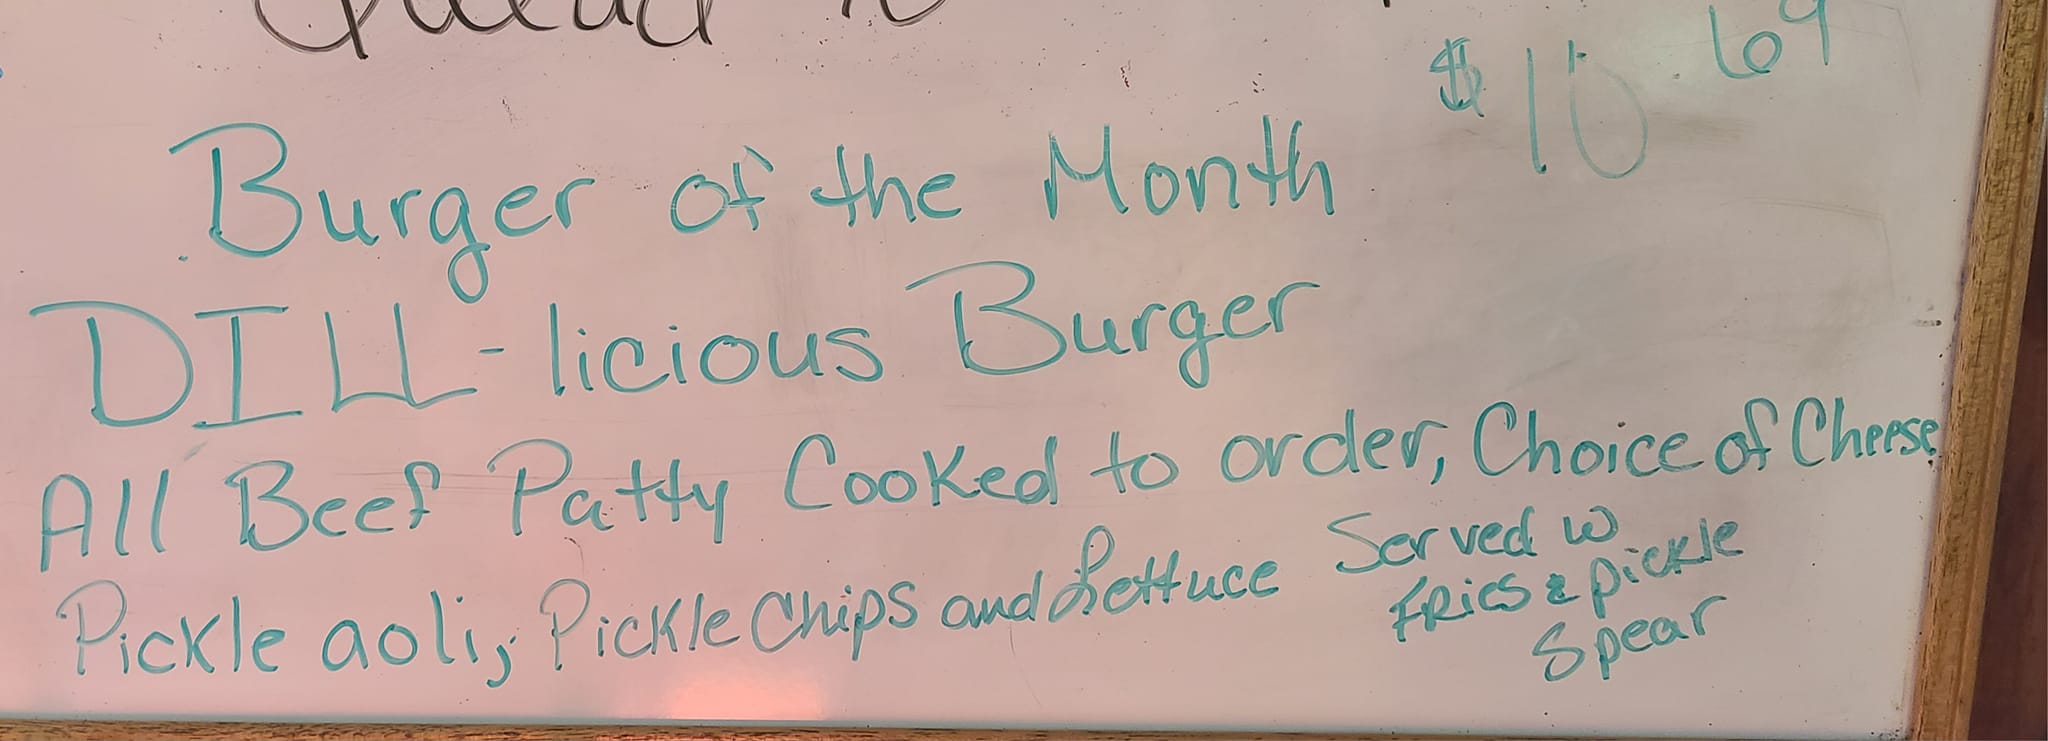 $10 69
Burger of the Month
DILL-licious Burger
All Beef Patty Cooked to order, Choice of Cheese
Pickle aoli, Pickle Chips and Lettuce
Served w
Fries & pickle
Spear